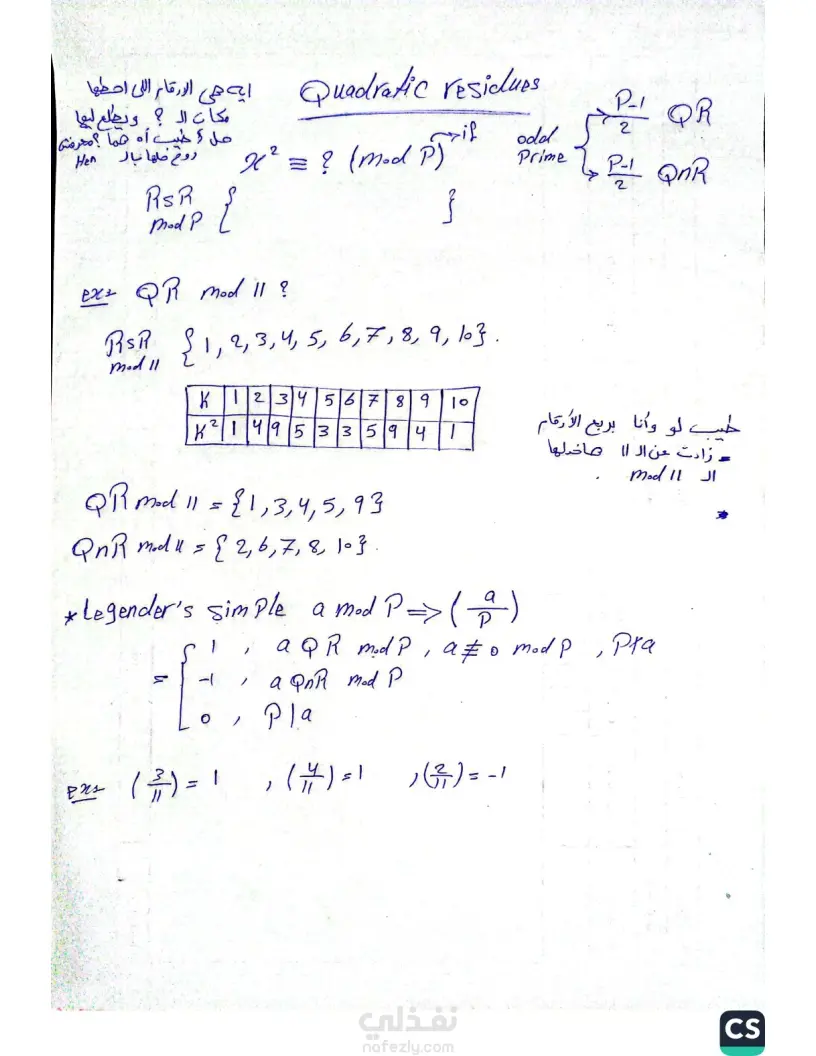 Quadratic residues
ايه هي الارقام اللي احطها
مكان ال ? ويطلع ليها
حل ؟ طيب أه هما ؟
Hen
x² ≡ ? (mod P) → if odd Prime
P-1/2 QR
P-1/2 QnR
RSR mod P { }
ex: QR mod 11 ?
RSR mod 11 {1, 2, 3, 4, 5, 6, 7, 8, 9, 10}.
K 1 2 3 4 5 6 7 8 9 10
K² 1 4 9 5 3 3 5 9 4 1
طيب لو وأنا بربع الأرقام
زادت عن ال 11 هاخدلها
ال mod 11 .
QR mod 11 = {1, 3, 4, 5, 9}
QnR mod 11 = {2, 6, 7, 8, 10}.
* Legender's simple a mod P => (a/P)
= { 1 , a QR mod P , a ≢ 0 mod P , P∤a
-1 , a QnR mod P
0 , P | a
ex: (3/11) = 1 , (4/11) = 1 , (2/11) = -1
نفذلي
nafezly.com
CS